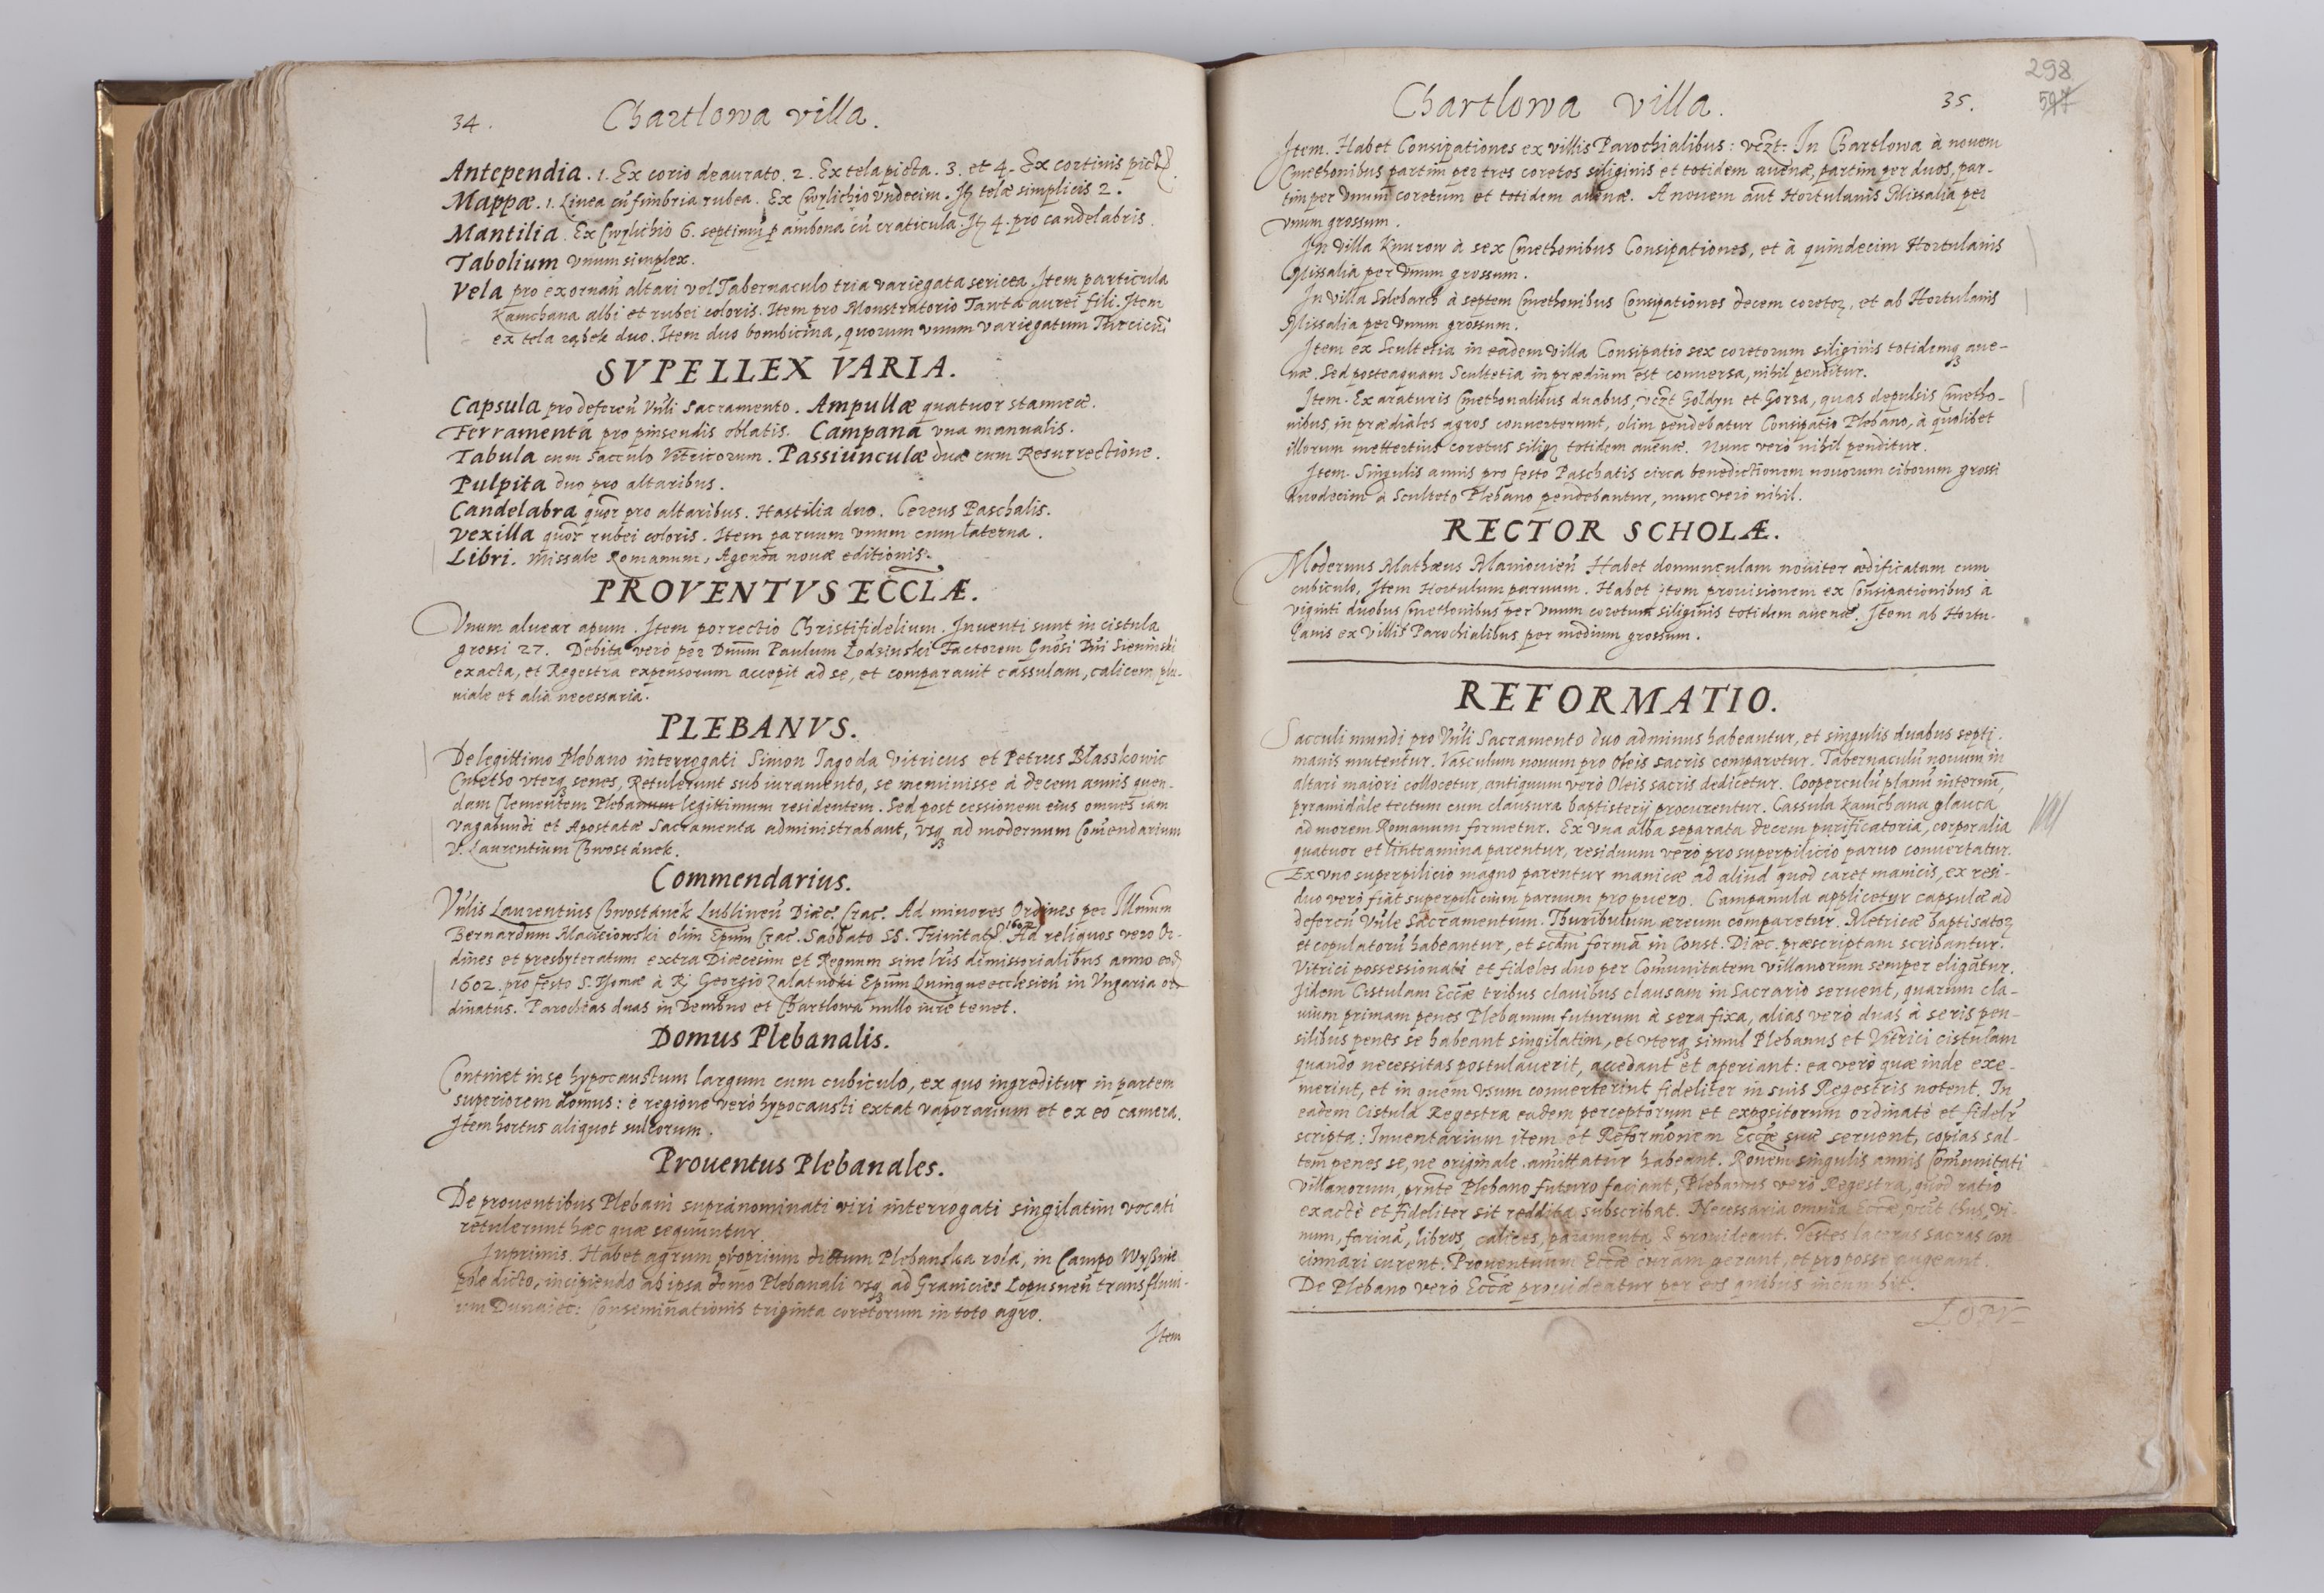 34.
Chartlowa villa.
Antependia. 1. Ex corio deaurato. 2. Ex tela picta. 3. et 4. Ex cortinis
Mappæ. 1. Linea cũ fimbria rubea. Ex Cwylichio vndecim. Itẽ telæ simplicis 2.
Mantilia. Ex Cwylichio 6. septimũ p ambona cũ craticula. Itẽ 4. pro candelabris.
Tabolium vnum simplex.
Vela pro exornañ altari vel Tabernaculo tria variegata sericea. Item particula
Kamchana albi et rubei coloris. Item pro Monstratorio Tanta aurei fili. Item
ex tela rąbek duo. Item duo bombicina, quorum vnum variegatum Turcicũ
SVPELLEX VARIA.
Capsula pro deferẽñ Vñli Sacramento. Ampullæ quatuor stanneæ.
Ferramenta pro pinsendis oblatis. Campana vna manualis.
Tabula cum Sacculo Vitricorum. Passiunculæ duæ cum Resurrectione.
Pulpita duo pro altaribus.
Candelabra quõr pro altaribus. Hastilia duo. Cereus Paschalis.
Vexilla quõr rubei coloris. Item paruum vnum cum laterna.
Libri. Missale Romanum, Agenda nouæ editionis.
PROVENTVS ECCLÆ.
Vnum aluear apum. Item porrectio Christifidelium. Inuenti sunt in cistula
grossi 27. Debita verò per Dnum Paulum Lodzinski Factorem Gnosi Dñi Sieninski
exacta, et Regestra expensorum accepit ad se, et comparauit cassulam, calicem, plu-
uiale et alia necessaria.
PLEBANVS.
De legittimo Plebano interrogati Simon Jagoda Vitricus et Petrus Błasskowic
Cmetho vterq senes, Retulerunt sub iuramento, se meminisse à decem annis quen-
dam Clementem Plebanum legittimum residentem. Sed post cessionem eius omnes iam
vagabundi et Apostatæ Sacramenta administrabant, vsq ad modernum Comendarium
V. Laurentium Chwostánek.
Commendarius.
Vñlis Laurentius Chwostánek Lublineñ Diæc. Crac. Ad minores Ordines per Illmum
Bernardum Macieiowski olim Epum Crac. Sabbato SS. Trinitatis 1602. Ad reliquos vero Or-
dines et presbyteratum extra Diæcesim et Regnum sine lris dimissorialibus anno eod
1602. pro festo S. Thomæ à R. Georgio Zalatnoki Epum Quinqueecclesieñ in Vngaria or-
dinatus. Parochias duas in Dembno et Chartlowa nullo iure tenet.
Domus Plebanalis.
Continet in se hypocaustum largum cum cubiculo, ex quo ingreditur in partem
superiorem domus: è regione verò hypocausti extat vaporarium et ex eo camera.
Item hortus aliquot sulcorum.
Prouentus Plebanales.
De prouentibus Plebani supranominati viri interrogati singilatim vocati
retulerunt hæc quæ sequuntur.
Inprimis. Habet agrum proprium dictum Plebanska rola, in Campo Wyßnie
pole dicto, incipiendo ab ipsa domo Plebanali vsq ad Granicies Lopusneñ trans fluui-
um Dunaiec: Conseminationis triginta coretorum in toto agro.
Item
298
597
Chartlowa villa.
35.
Item. Habet Consipationes ex villis Parochialibus: vczt: In Chartlowa à nouem
Cmethonibus partim per tres coretos siliginis et totidem auenæ, partim per duos, par-
tim per vnum coretum et totidem auenæ. A nouem aut Hortulanis Missalia per
vnum grossum.
In villa Knurow à sex Cmethonibus Consipationes, et à quindecim Hortulanis
Missalia per vnum grossum.
In villa à septem Cmethonibus Consipationes decem coretoꝝ, et ab Hortulanis
Missalia per vnum grossum.
Item ex Scultetia in eadem villa Consipatio sex coretorum siliginis totidemq aue-
næ. Sed posteaquam Scultetia in prædium est conuersa, nihil penditur.
Item. Ex araturis Cmethonalibus duabus, vczt Goldyn et Gorza, quas depulsis Cmetho-
nibus in prædiales agros conuerterunt, olim pendebatur Consipatio Plebano, à quolibet
illorum mettertius coretus silig totidem auenæ. Nunc verò nihil penditur.
Item. Singulis annis pro festo Paschatis circa benedictionem nouorum ciborum grossi
duodecim à Sculteto Plebano pendebantur, nunc verò nihil.
RECTOR SCHOLÆ.
Modernus Mathæus Maniouieñ Habet domunculam nouiter ædificatam cum
cubiculo, Item Hortulum paruum. Habet item prouisionem ex Consipationibus à
viginti duobus Cmethonibus per vnum coretum siliginis totidem auenæ. Item ab Hortu-
lanis ex villis Parochialibus per medium grossum.
REFORMATIO.
Sacculi mundi pro Vñli Sacramento duo ad minus habeantur, et singulis duabus septi-
manis mutentur. Vasculum nouum pro Oleis sacris comparetur. Tabernaculũ nouum in
altari maiori collocetur, antiquum verò Oleis sacris dedicetur. Cooperculũ planũ internũ,
pyramidale tectum cum clausura baptisterij procurentur. Cassula Kamchana glauca
ad morem Romanum formetur. Ex vna alba separata decem purificatoria, corporalia
quatuor et linteamina parentur, residuum verò pro superpilicio paruo conuertatur.
Ex vno superpilicio magno parentur manicæ ad aliud quod caret manicis, ex resi-
duo verò fiat superpilicium paruum pro puero. Campanula applicetur capsulæ ad
deferẽñ Vñle Sacramentum. Thuribulum æreum comparetur. Metricæ baptisatoꝝ
et copulatorũ habeantur, et scdm formã in Const. Diæc. præscriptam scribantur.
Vitrici possessionati et fideles duo per Comunitatem villanorum semper eligãtur.
Iidem Cistulam Eccæ tribus clauibus clausam in Sacrario seruent, quarum cla-
uium primam penes Plebanum futurum à sera fixa, alias verò duas à seris pen-
silibus penes se habeant singilatim, et vterq simul Plebanus et Vitrici cistulam
quando necessitas postulauerit, accedant et aperiant: ea verò quæ inde exe-
merint, et in quem vsum conuerterint fideliter in suis Regestris notent. In
eadem Cistula Regestra eadem perceptorum et expositorum ordinatè et fidelr
scripta: Inuentarium item et Reformonem Eccæ suæ seruent, copias sal-
tem penes se, ne originale amittatur habeant. Ronem singulis annis Comunitati
villanorum, prnte Plebano futuro faciant, Plebanus verò Regestra, quod ratio
exactè et fideliter sit reddita subscribat. Necessaria omnia Eccæ, vt thus, vi-
num, farinã, libros, calices, paramenta & prouideant. Vestes laceras sacras con
cinnari curent. Prouentuum Eccæ curam gerant, et pro posse augeant.
De Plebano verò Eccæ prouideatur per eos quibus incumbit.
LOPV-